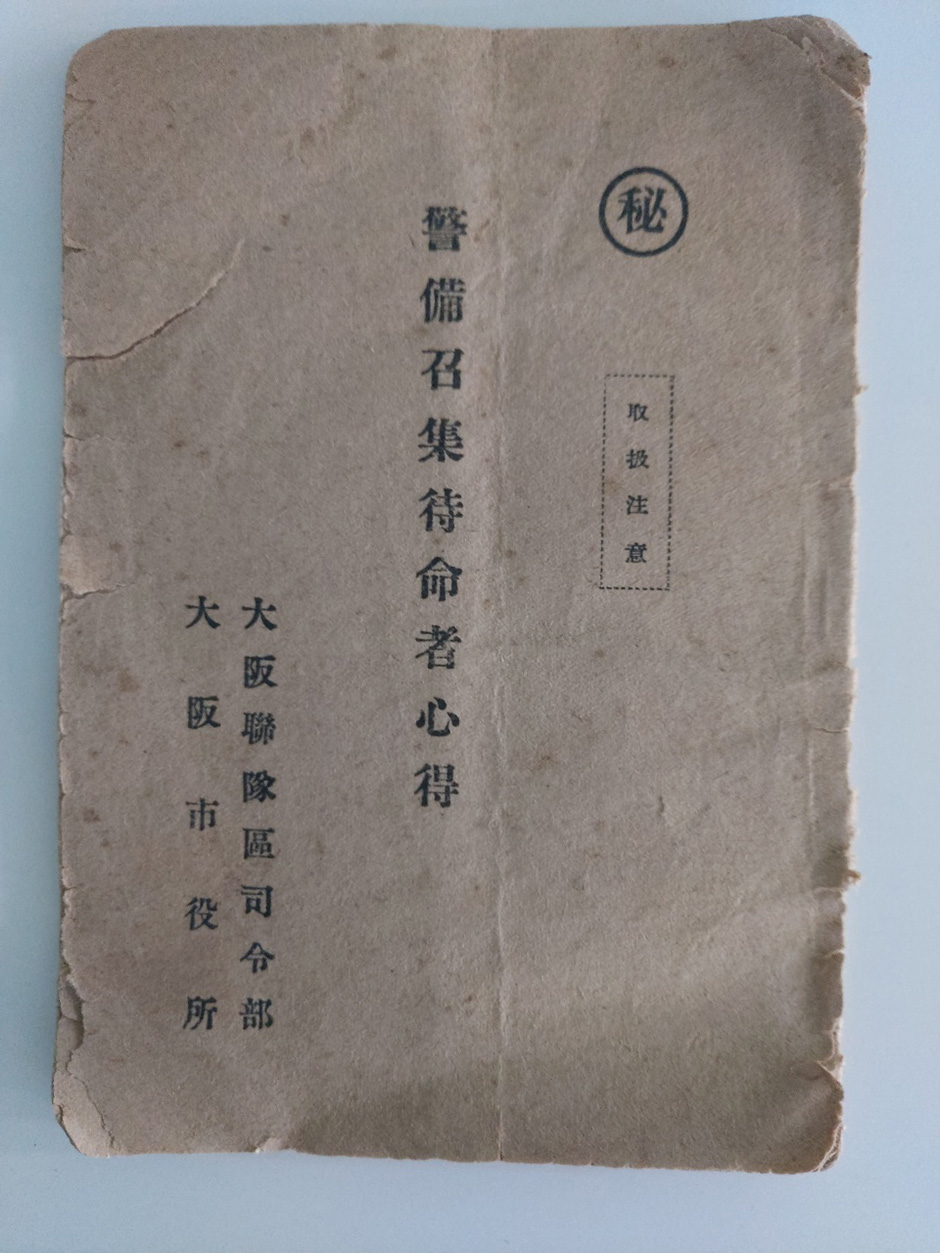 秘
取扱注意
警備召集待命者心得
大阪聯隊區司令部
大阪市役所